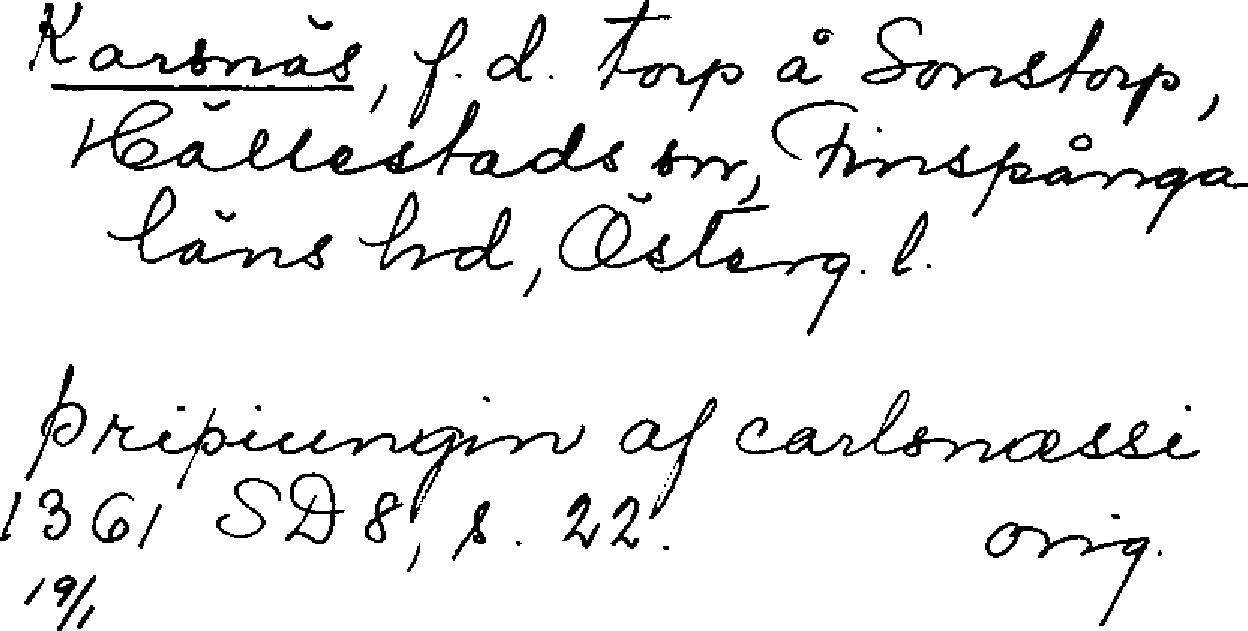 Karsnäs, f.d. torp å Sonstorp,
Hällestads sn, Finspånga
läns hd, Österg. l.
þriþiungin af carlsnæssi
1361 SD 8, s. 22. orig.
19/1